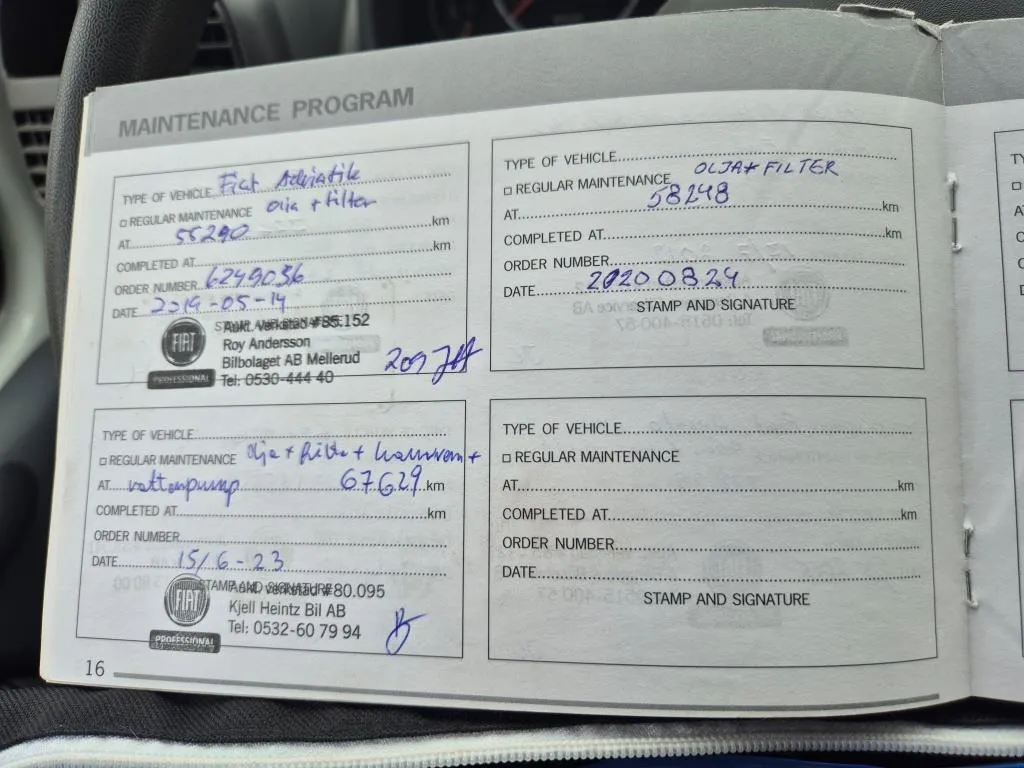 MAINTENANCE PROGRAM
TYPE OF VEHICLE Fiat Adriatik
REGULAR MAINTENANCE olja + filter
AT 55290 km
COMPLETED AT km
ORDER NUMBER 6249036
DATE 2019-05-14
STAMP AND SIGNATURE
Aukt. verkstad #85.152
Roy Andersson
Bilbolaget AB Mellerud
Tel: 0530-444 40
FIAT
PROFESSIONAL
TYPE OF VEHICLE
REGULAR MAINTENANCE OLJA + FILTER
AT 58248 km
COMPLETED AT km
ORDER NUMBER
DATE 20200824
STAMP AND SIGNATURE
TYPE OF VEHICLE
REGULAR MAINTENANCE olja + filter + kamrem +
AT vattenpump 67629 km
COMPLETED AT km
ORDER NUMBER
DATE 15/6-23
STAMP AND SIGNATURE
Aukt. verkstad #80.095
Kjell Heintz Bil AB
Tel: 0532-60 79 94
FIAT
PROFESSIONAL
TYPE OF VEHICLE
REGULAR MAINTENANCE
AT km
COMPLETED AT km
ORDER NUMBER
DATE
STAMP AND SIGNATURE
16